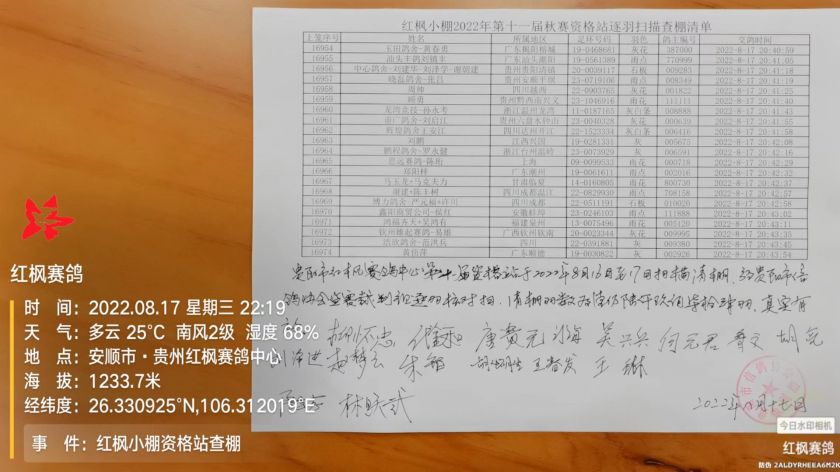 红枫小棚2022年第十一届秋赛资格站逐羽扫描查棚清单
上笼序号 姓名 所属地区 足环号码 羽色 鸽主编号 交鸽时间
16954 玉田鸽舍-黄春勇 广东揭阳榕城 19-0468681 灰花 387000 2022-8-17 20:40:59
16955 汕头主鸽刘镇丰 广东汕头潮阳 19-0561389 雨点 770999 2022-8-17 20:41:05
16956 中心鸽舍-刘建华-刘泽学-谢朝建 贵州贵阳清镇 20-0039117 石板 009283 2022-8-17 20:41:18
16957 晓磊鸽舍-张吕 贵州安顺平坝 23-0719106 雨点 008349 2022-8-17 20:41:19
16958 周帅 四川越西 22-0903765 灰花 001822 2022-8-17 20:41:25
16959 顾勇 贵州黔西南兴义 23-1046916 雨花 111111 2022-8-17 20:41:40
16960 龙湾竞技-孙永考 浙江温州龙湾 11-0187165 灰白条 008888 2022-8-17 20:41:43
16961 南广鸽舍-刘启江 贵州六盘水钟山 22-0140640 灰花 000639 2022-8-17 20:41:55
16962 辉煌鸽舍王安江 四川达州开江 22-1523334 灰白条 006416 2022-8-17 20:41:58
16963 刘鹏 江西兴国 19-0281331 灰 005675 2022-8-17 20:42:08
16964 鹏程鸽舍-罗永健 浙江台州温岭 22-0073929 灰 006591 2022-8-17 20:42:16
16965 思远赛鸽-陈珩 上海 09-0099533 雨花 000718 2022-8-17 20:42:29
16966 郑阳林 广东潮州 19-0061611 雨点 002016 2022-8-17 20:42:32
16967 马玉龙+马克夫力 甘肃临夏 14-0160805 雨花 800730 2022-8-17 20:42:37
16968 谢建+陈玉树 四川成都温江 22-0829480 雨点 708158 2022-8-17 20:42:57
16969 博力鸽舍-严远福+许川 四川成都 22-0511191 石板 010020 2022-8-17 20:42:58
16970 鑫阳商贸公司-侯红 安徽蚌埠 23-0246103 雨点 111888 2022-8-17 20:43:02
16971 鸿福齐天+吴鸿有 福建泉州 13-0075490 雨花 005120 2022-8-17 20:43:14
16972 钦州雄起赛鸽-易雄 广西钦州钦南 20-0023344 灰花 009995 2022-8-17 20:43:35
16973 浩欣鸽舍-范洪兵 四川 22-0391881 灰 009380 2022-8-17 20:43:45
16974 黄伤萍 广东顺德 19-0021822 灰 000030 2022-8-17 20:43:54
贵阳市红枫赛鸽中心第十一届资格站于2022年8月16日至17日扫描清棚,经贵阳市信
鸽协会
柳怀忠 吴兴兵 何元君 胡亮
朱 王春发 王琳
林跃武 2022年8月十七日
红枫赛鸽
时 间:2022.08.17 星期三 22:19
天 气:多云 25°C 南风2级 湿度 68%
地 点:安顺市·贵州红枫赛鸽中心
海 拔:1233.7米
经纬度:26.330925°N,106.312019°E
事 件:红枫小棚资格站查棚
今日水印相机
红枫赛鸽
防伪 2ALDYRHEEA6MJK